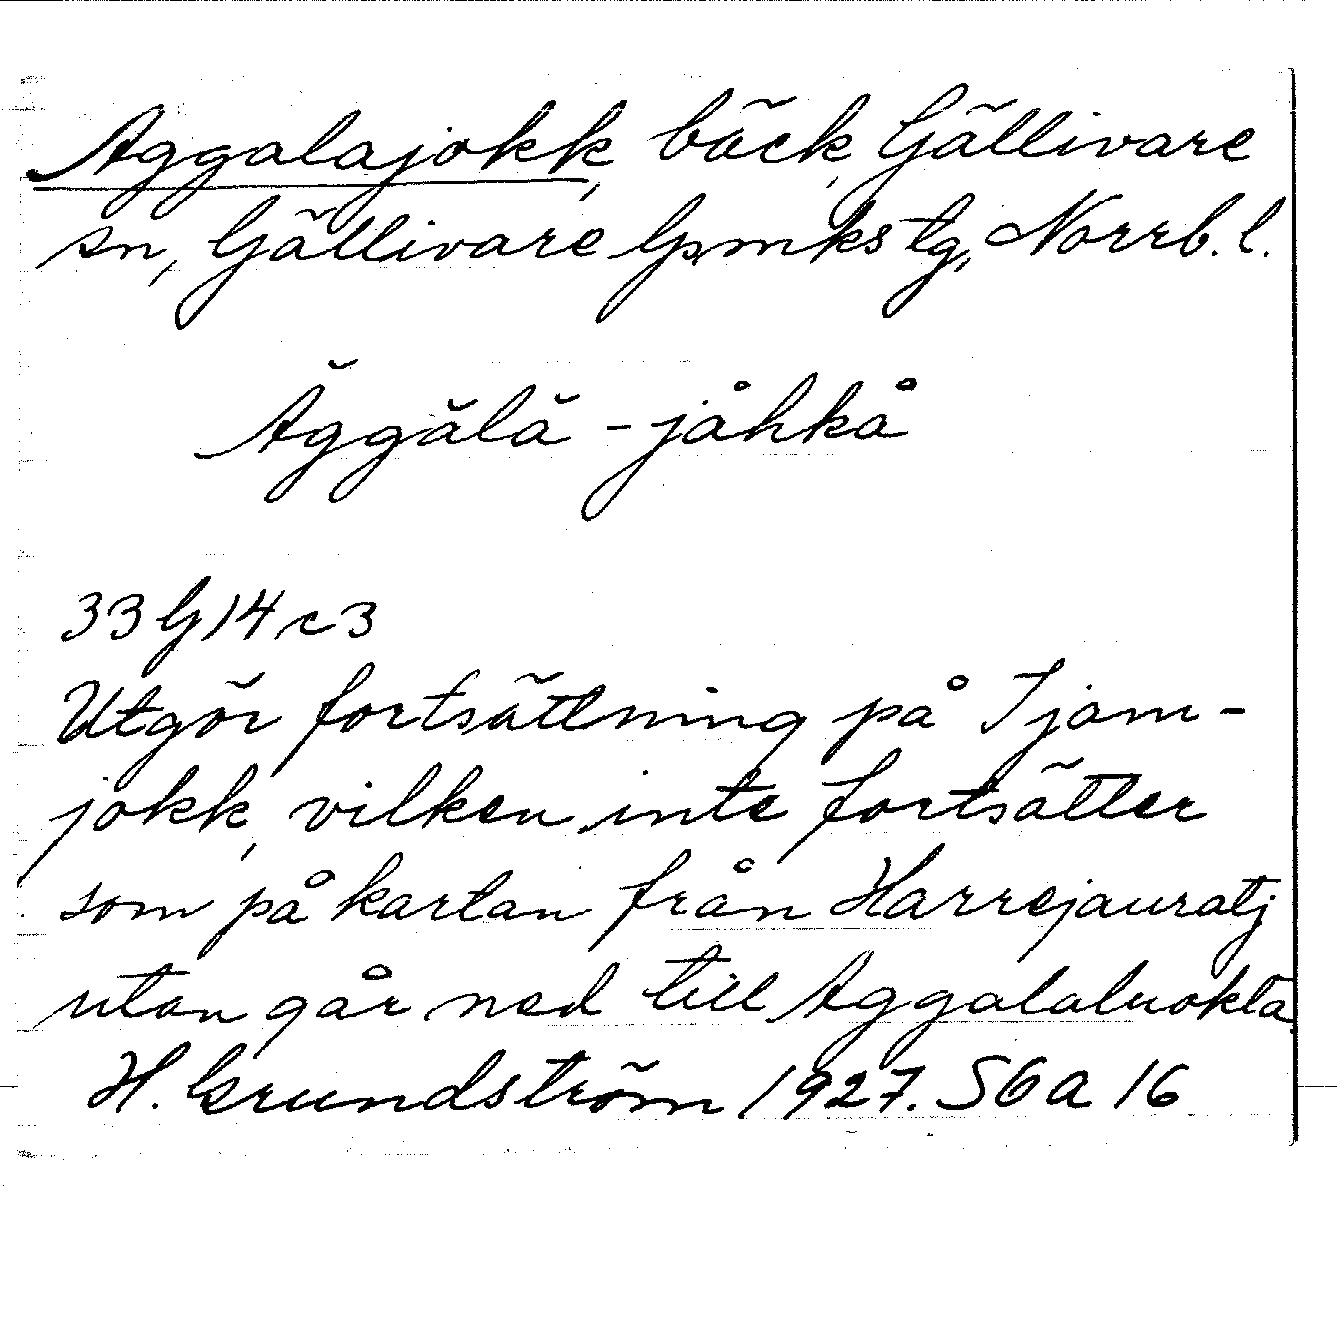 Aggalajokk, bäck, Gällivare
sn, Gällivare lpmkstg, Norrb. l.
Ăggălă - jåhkå
33 G 14 c 3
Utgör fortsättning på Tjam-
jokk, vilken inte fortsätter
som på kartan från Harrejauratj
utan går ned till Aggalaluokta
H. Grundström 1927. SGA 16